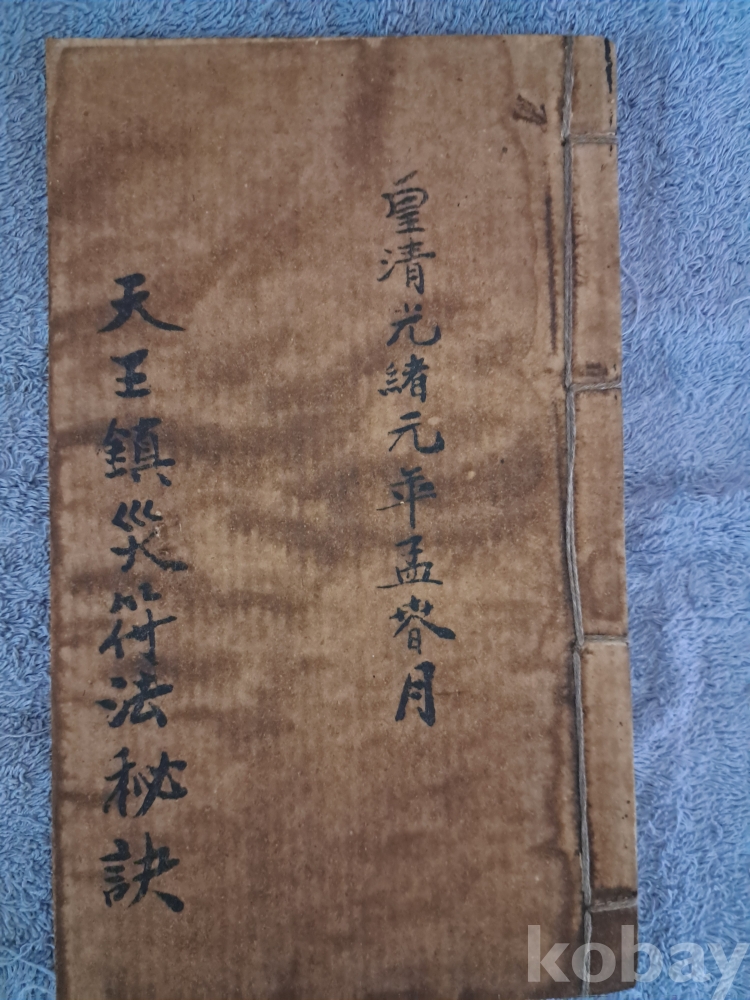 皇清光緒元年孟春月
天王鎮災符法秘訣
kobay